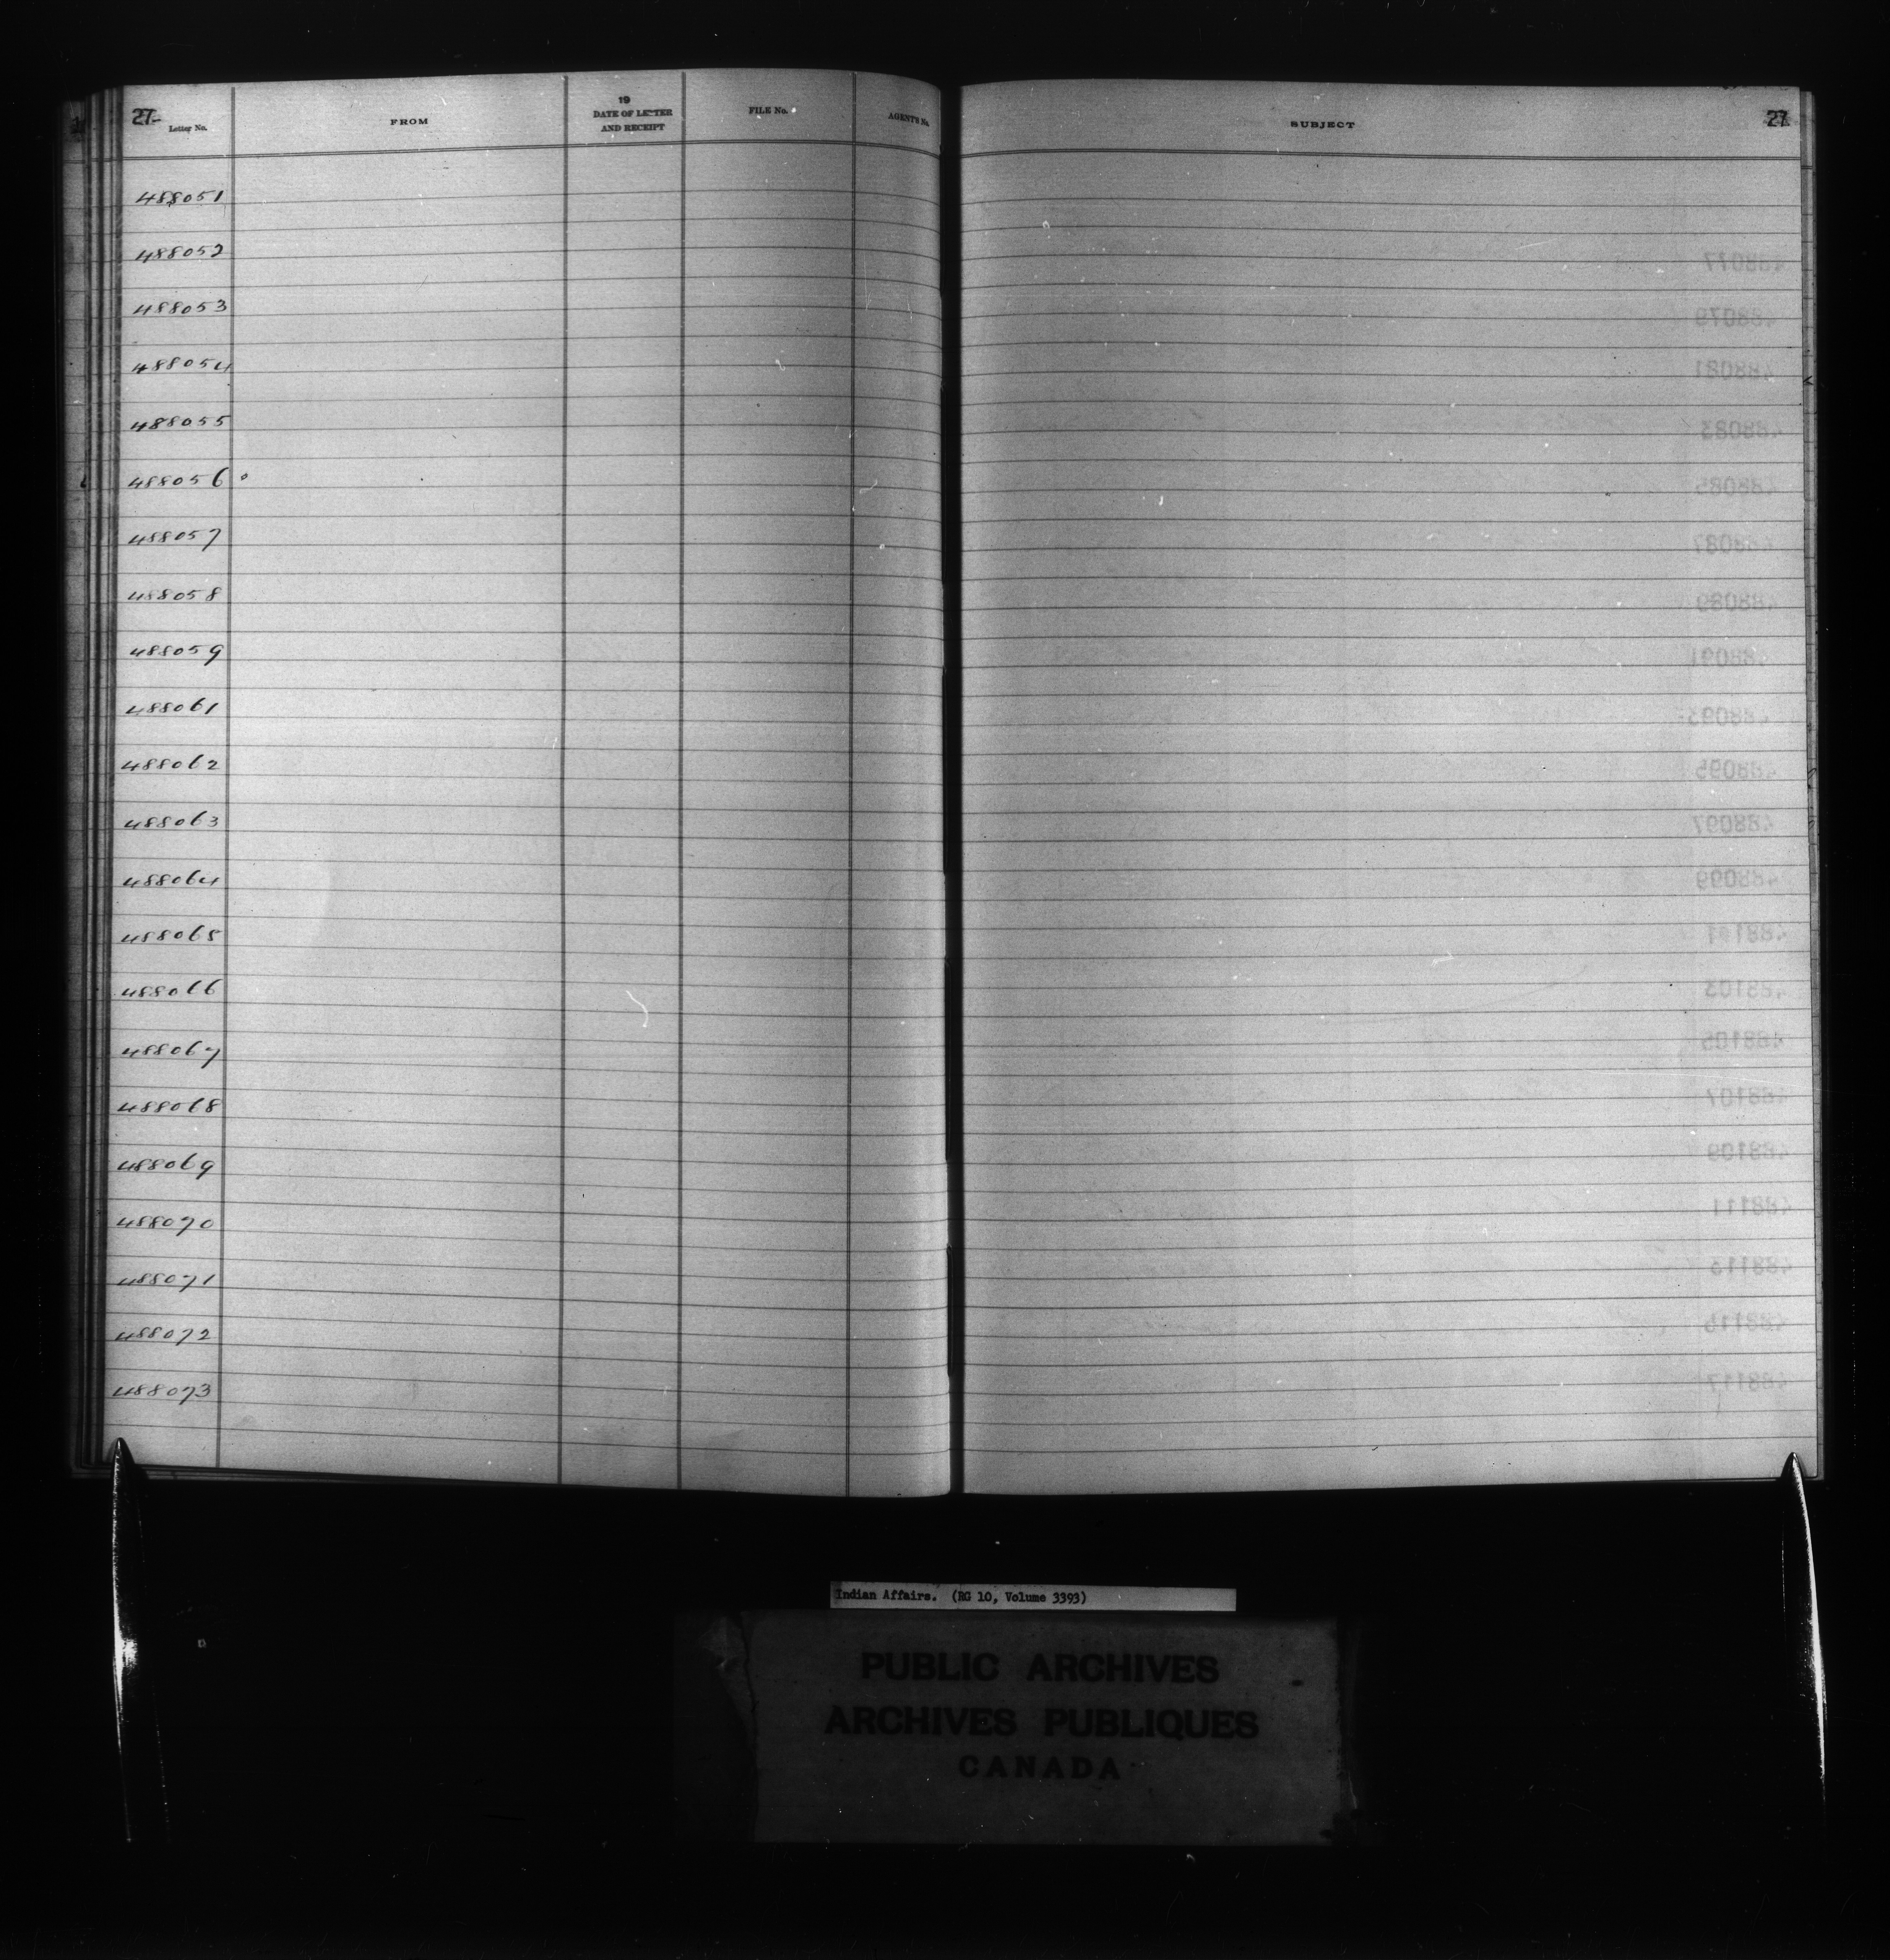 27
Letter No.
FROM
19
DATE OF LETTER
AND RECEIPT
FILE No.
AGENT'S No.
SUBJECT
27
488051
488052
488053
488054
488055
488056
488057
488058
488059
488061
488062
488063
488064
488065
488066
488067
488068
488069
488070
488071
488072
488073
Indian Affairs. (RG 10, Volume 3393)
PUBLIC ARCHIVES
ARCHIVES PUBLIQUES
CANADA